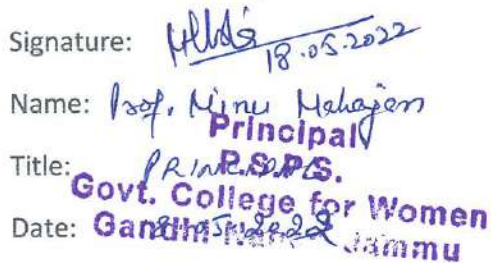 Signature:
18.05.2022
Name: Prof. Minu Mahajan
Principal
Title: PRINCIPAL
P.S.P.S.
Govt. College for Women
Date: 18.05.2022
Gandhi Jammu